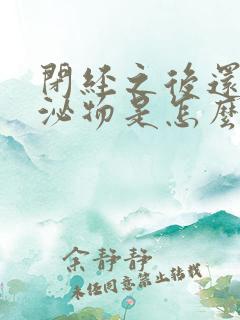 閉經之後還
泌物是怎麼
余靜靜
未经同意禁止转载